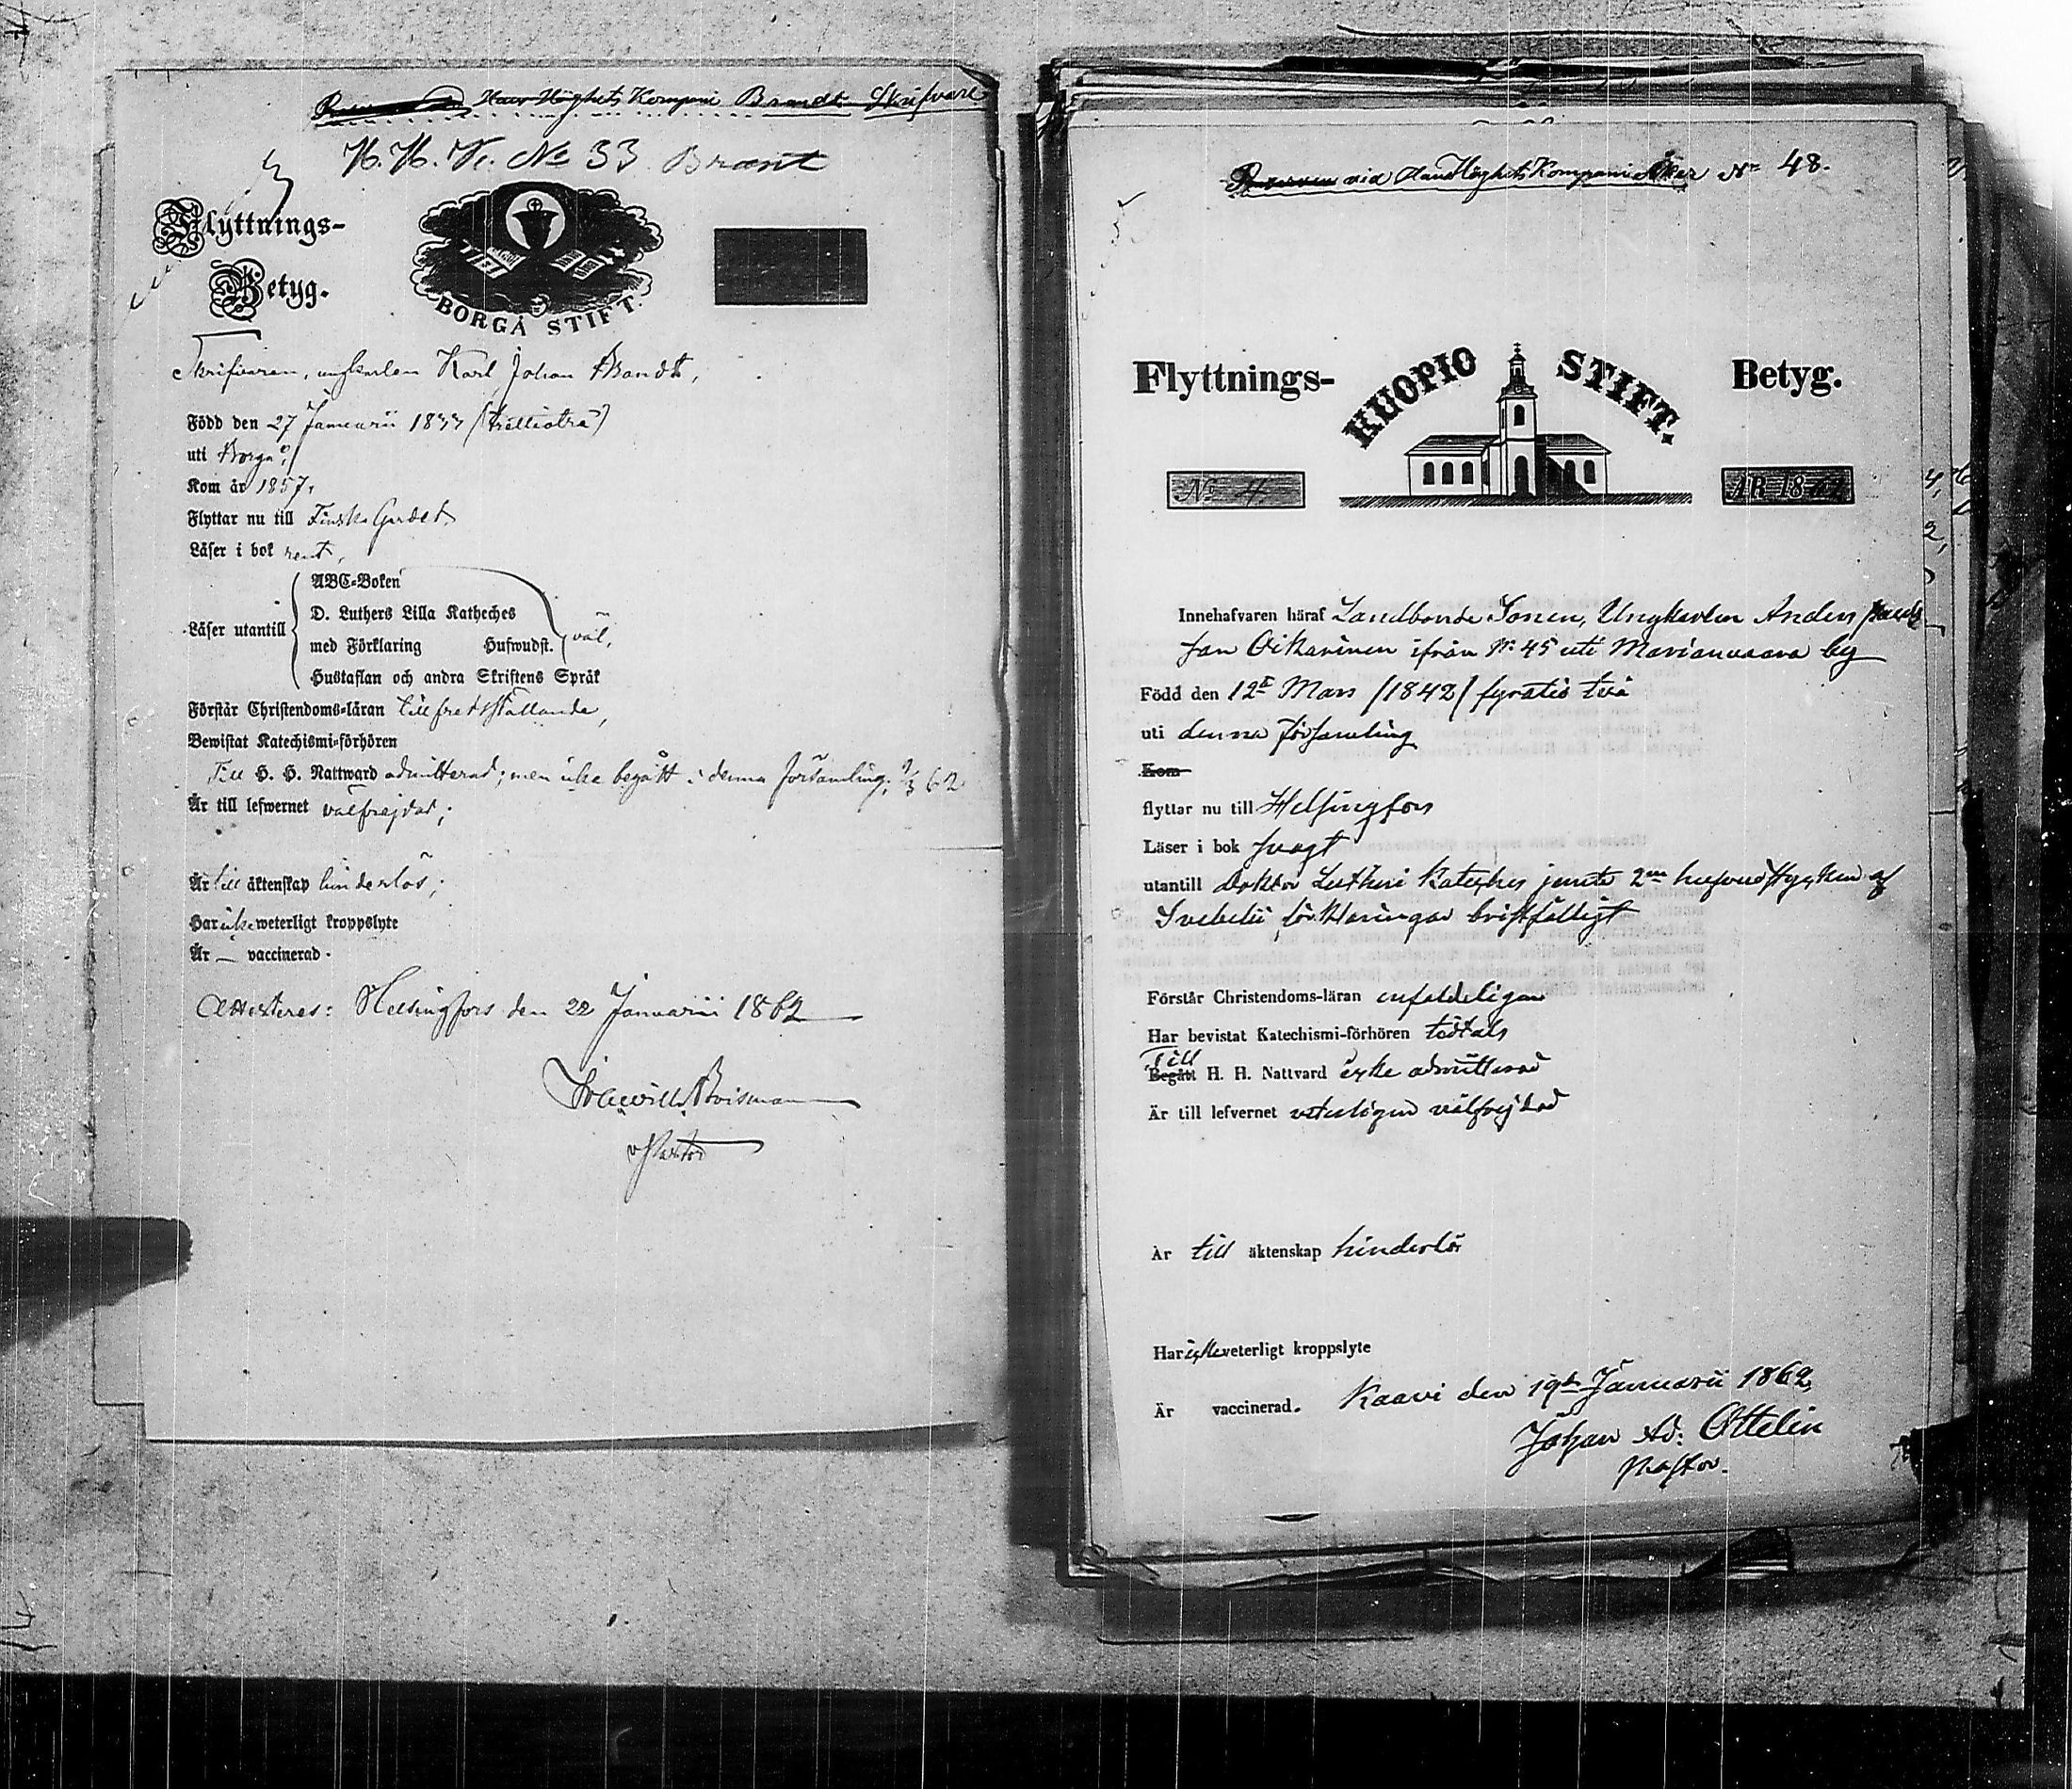 Hans Höghets Kompani Brandt Skrifvare
H. H. K. No 33 Brant
Flyttnings-
Betyg.
BORGÅ STIFT.
Skrifvaren, ungkarlen Karl Johan Brandt,
Född den 27 Januarii 1833 (trettiotre)
uti Borgå,
Kom år 1857,
Flyttar nu till Finska Gardet
Läser i bok rent,
Läser utantill
ABC-Boken
D. Luthers Lilla Katheches
med Förklaring Hufwudst. väl,
Hustaflan och andra Skriftens Språk
Förstår Christendoms-läran tillfredsställande,
Bewistat Katechismi-förhören
Till H. H. Nattward admitterad; men icke begått i denna församling; 62
Är till lefwernet välfrejdad;
Är till äktenskap hinderlös;
Har icke weterligt kroppslyte
Är — vaccinerad.
Attesteras: Helsingfors den 22 Januarii 1862
Boisman
v Pastor
vid Hans Höghets Kompani No 48.
Flyttnings-
KUOPIO STIFT.
Betyg.
No 4
ÅR 1862
Innehafvaren häraf Landbonde Sonen, Ungkarlen Anders
Jan Oikarinen ifrån No 45 uti Marianvaara by
Född den 12te Mars (1842) fyratio två
uti denna församling
Kom
flyttar nu till Helsingfors
Läser i bok svagt
utantill Doktor Lutheri Kateches jemte 2ne hufvudstycken af
Svebelii förklaringar bristfälligt
Förstår Christendoms-läran enfaldeligen
Har bevistat Katechismi-förhören
Till
Begått H. H. Nattvard icke admitterad
Är till lefvernet veterligen välfrejdad
Är till äktenskap hinderlös
Har icke veterligt kroppslyte
Är vaccinerad. Kaavi den 19de Januarii 1862
Johan Ad: Ottelin
Pastor.